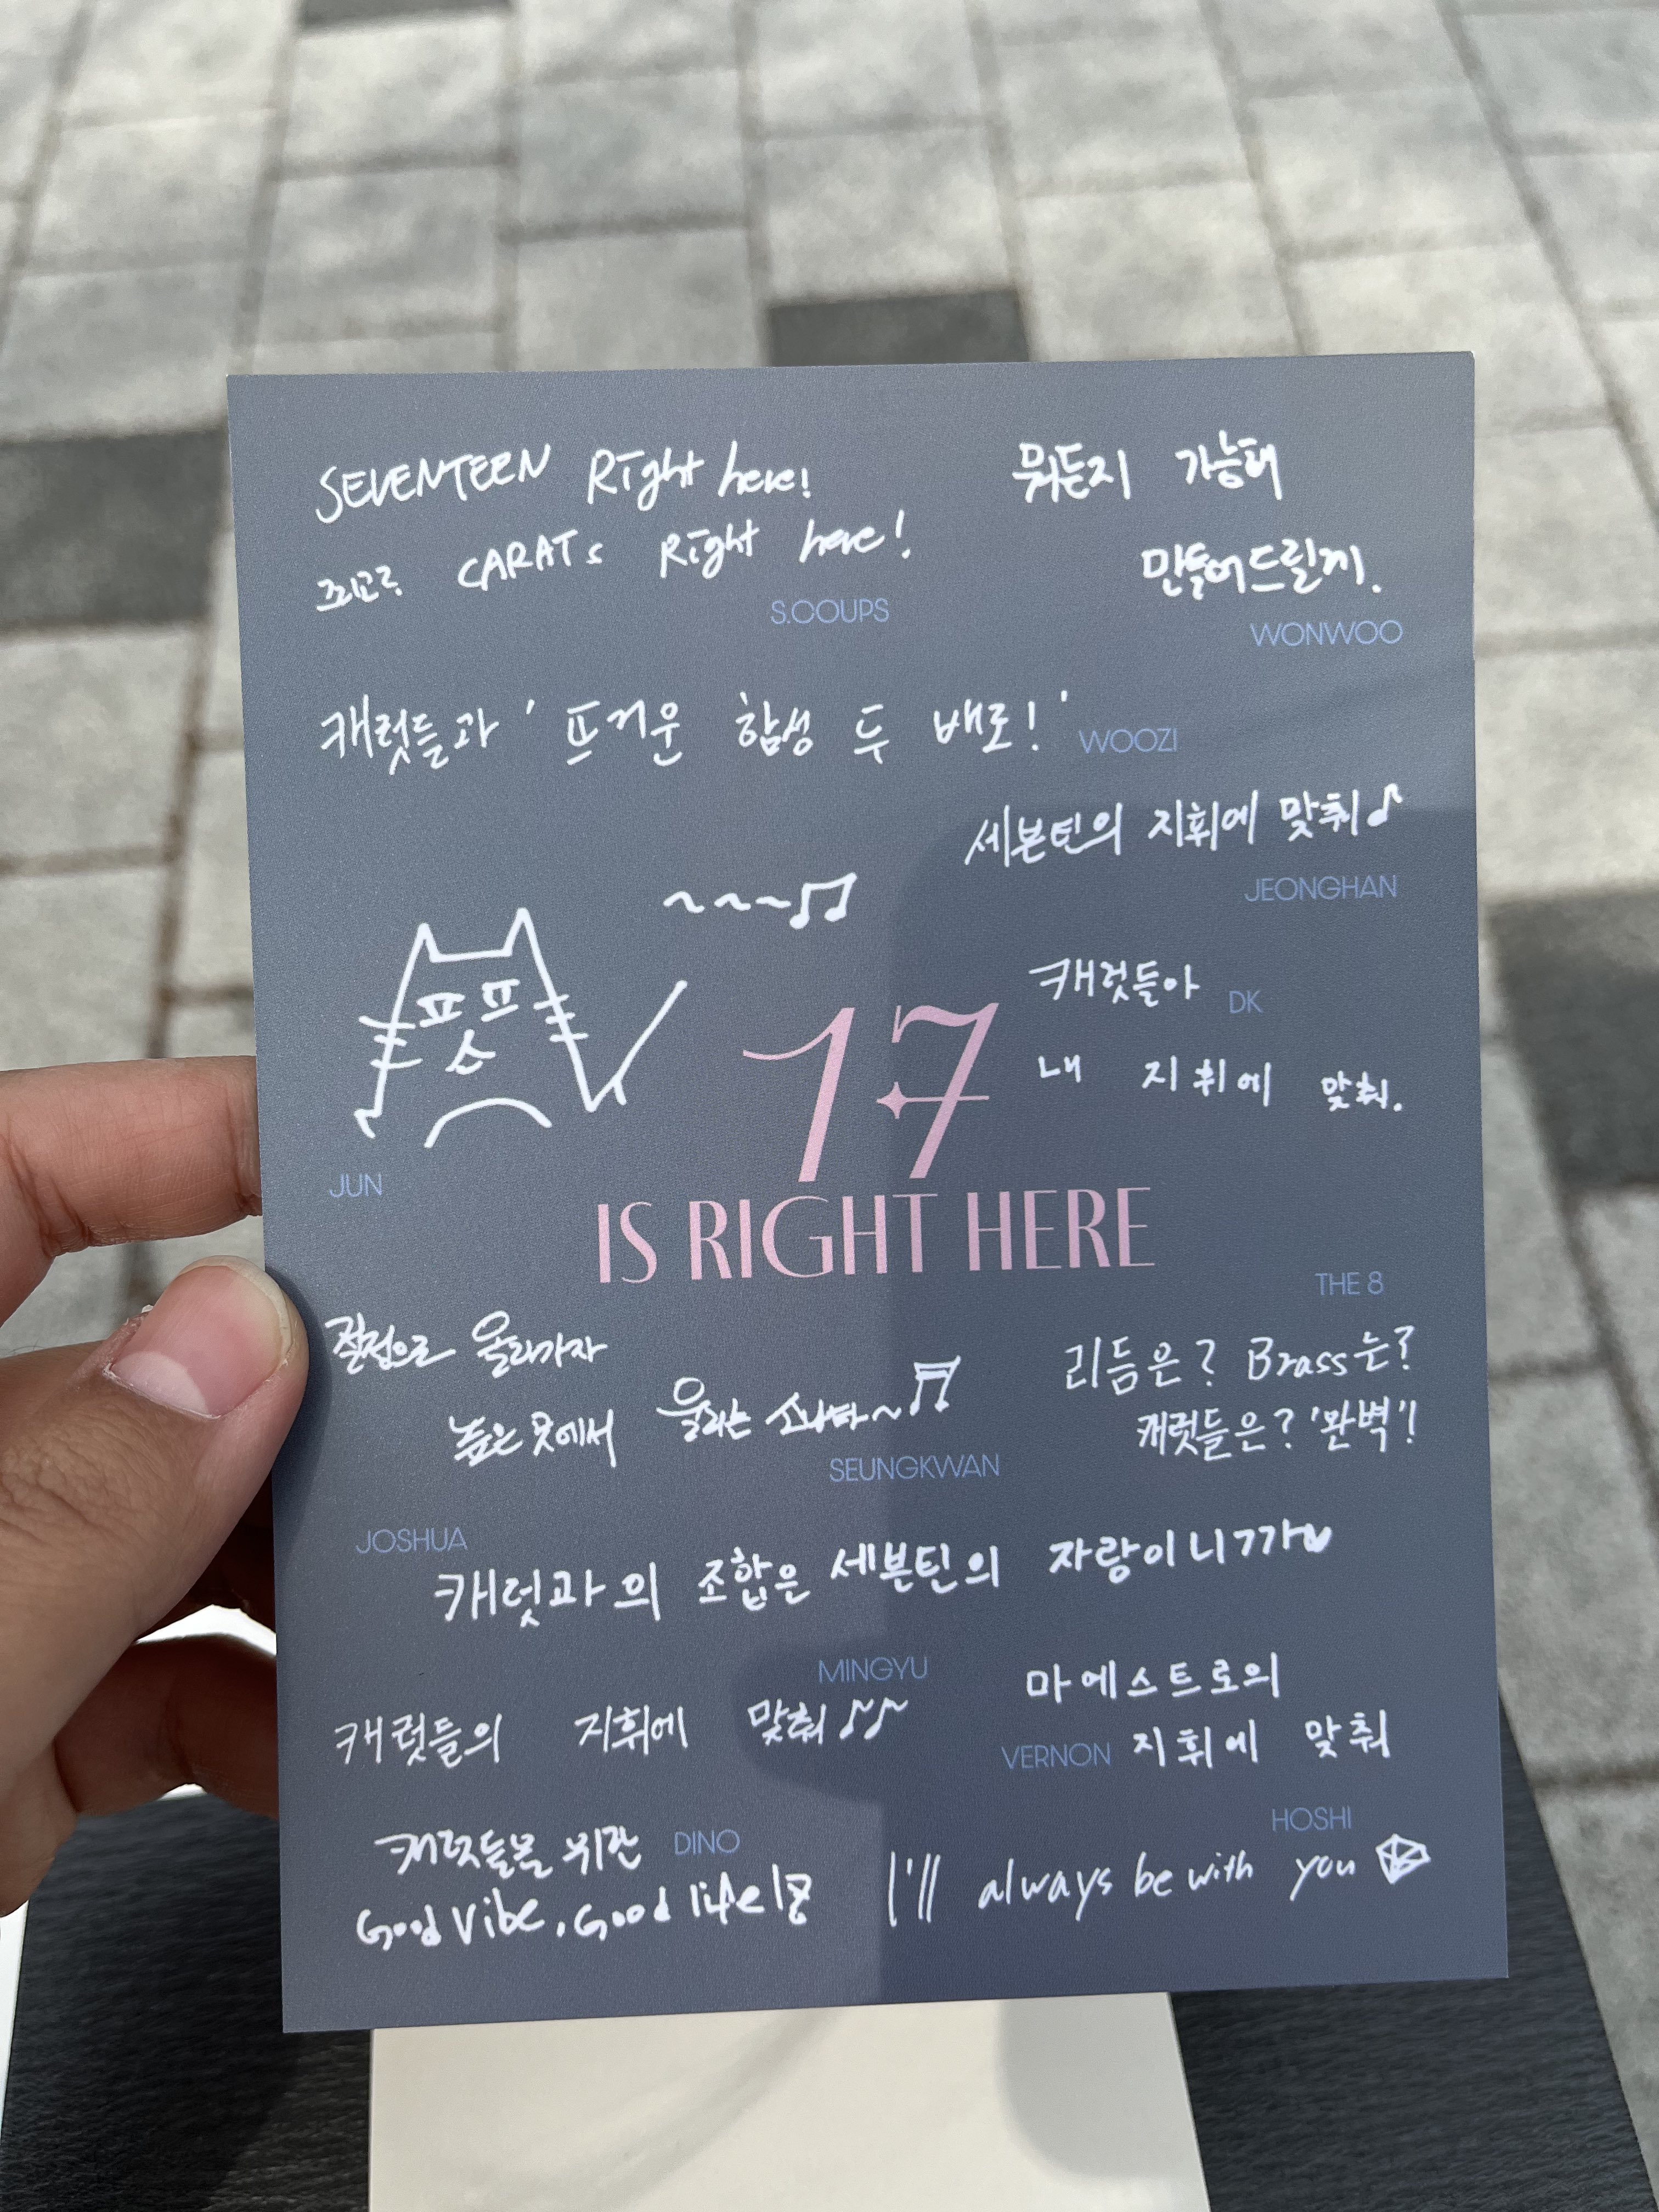 SEVENTEEN Right here!
최고 CARATs Right here!
S.COUPS
뭐든지 가능해
만들어드릴게.
WONWOO
캐럿들과 '뜨거운 함성 두 배로!'
WOOZI
세븐틴의 지휘에 맞춰♪
JEONGHAN
~~~♫
JUN
캐럿들아
DK
내 지휘에 맞춰.
17
IS RIGHT HERE
절정으로 올라가자
높은 곳에서 울리는 소나타~♬
SEUNGKWAN
THE 8
리듬은? Brass는?
캐럿들은? '완벽'!
JOSHUA
캐럿과의 조합은 세븐틴의 자랑이니까♥
MINGYU
캐럿들의 지휘에 맞춰 ♪♪~
마에스트로의
VERNON
지휘에 맞춰
캐럿들을 위한
DINO
Good Vibe, Good life!
HOSHI
I'll always be with you